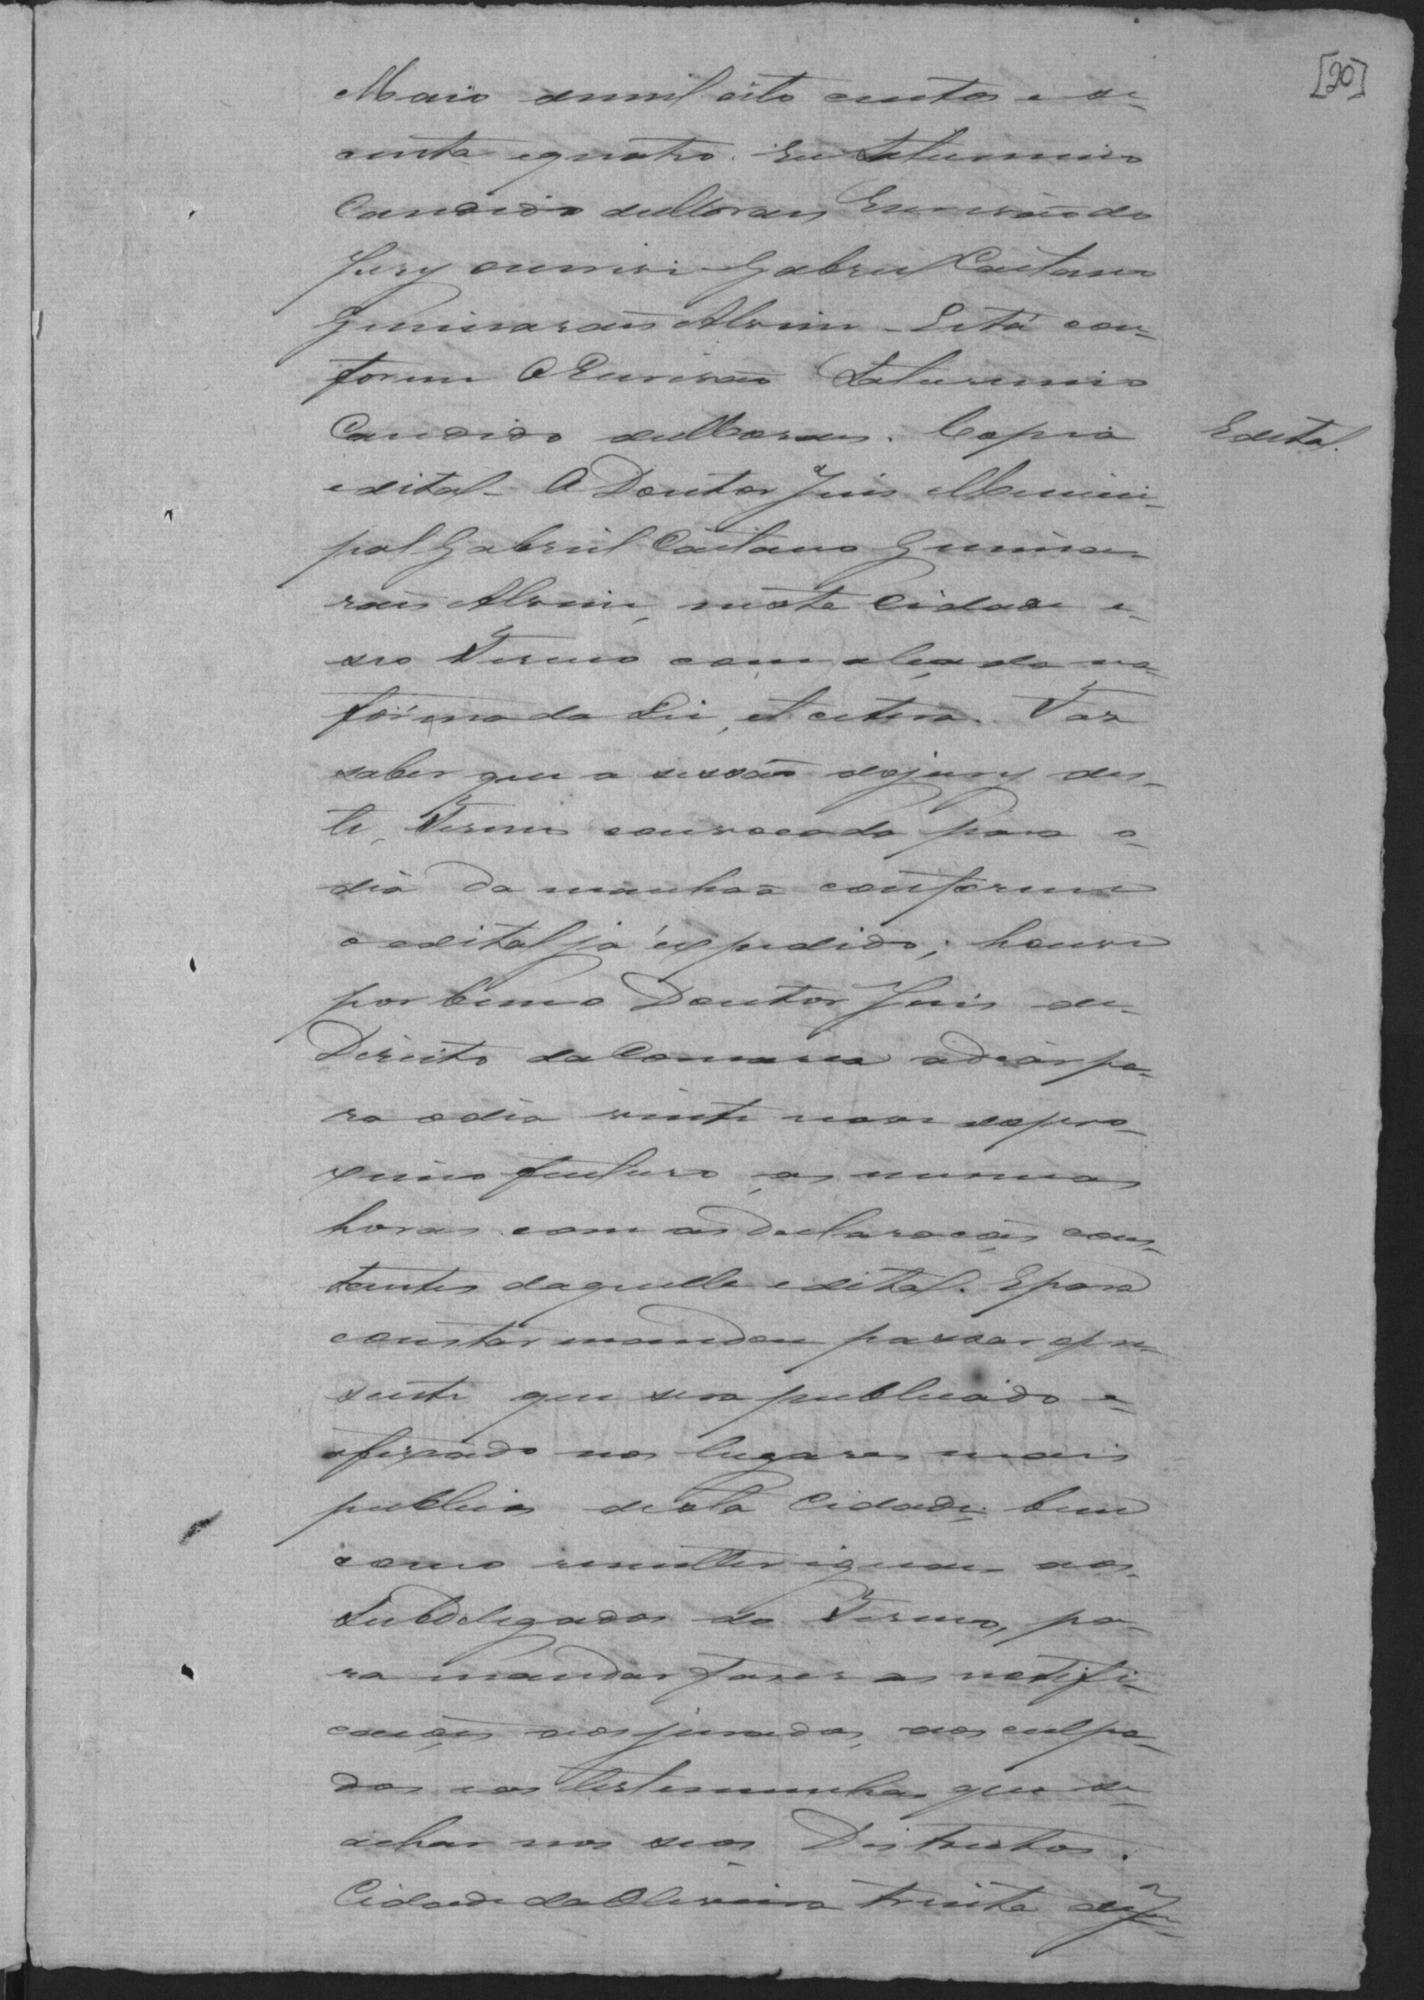 [20]
Maio demil oito centos e se-
centa equatro. Eu Saturnino
Candido deMoraes Escrivão do
Jury oescrevi Gabriel Caetano
Guimaraens Alvim - Está con-
forme O Escrivão Saturnino
Candido deMoraes. Copia
Edital.
edital - O Doutor Juis Munici-
pal Gabriel Caetano Guima-
raes Alvim, nésta Cidade e
seo Termo com alçada na
fórma da Lei, et cetera. Faz
saber que a sessão dojury des-
te, Termo convocado para o
dia da manhaã conforme
o edital já expedido; houve
por bem o Doutor Juis de
Direito da Comarca adiar pa-
ra odia vinte nove do pro-
ximo futuro as mesmas
horas com as declaraçoẽs cons-
tantes daquelle edital. Epara
constar mandou passar opre-
sente que sera publicado e
afixado nos lugares mais
publicos desta Cidade, bem
como remetter iguaes aos
Subdelegados do Termo, pa-
ra mandar faser as notifi-
cacoẽs aos jurados, aos culpa-
dos e as testemunhas que se
achar nos seos Districtos.
Cidade da Oliveira trinta de